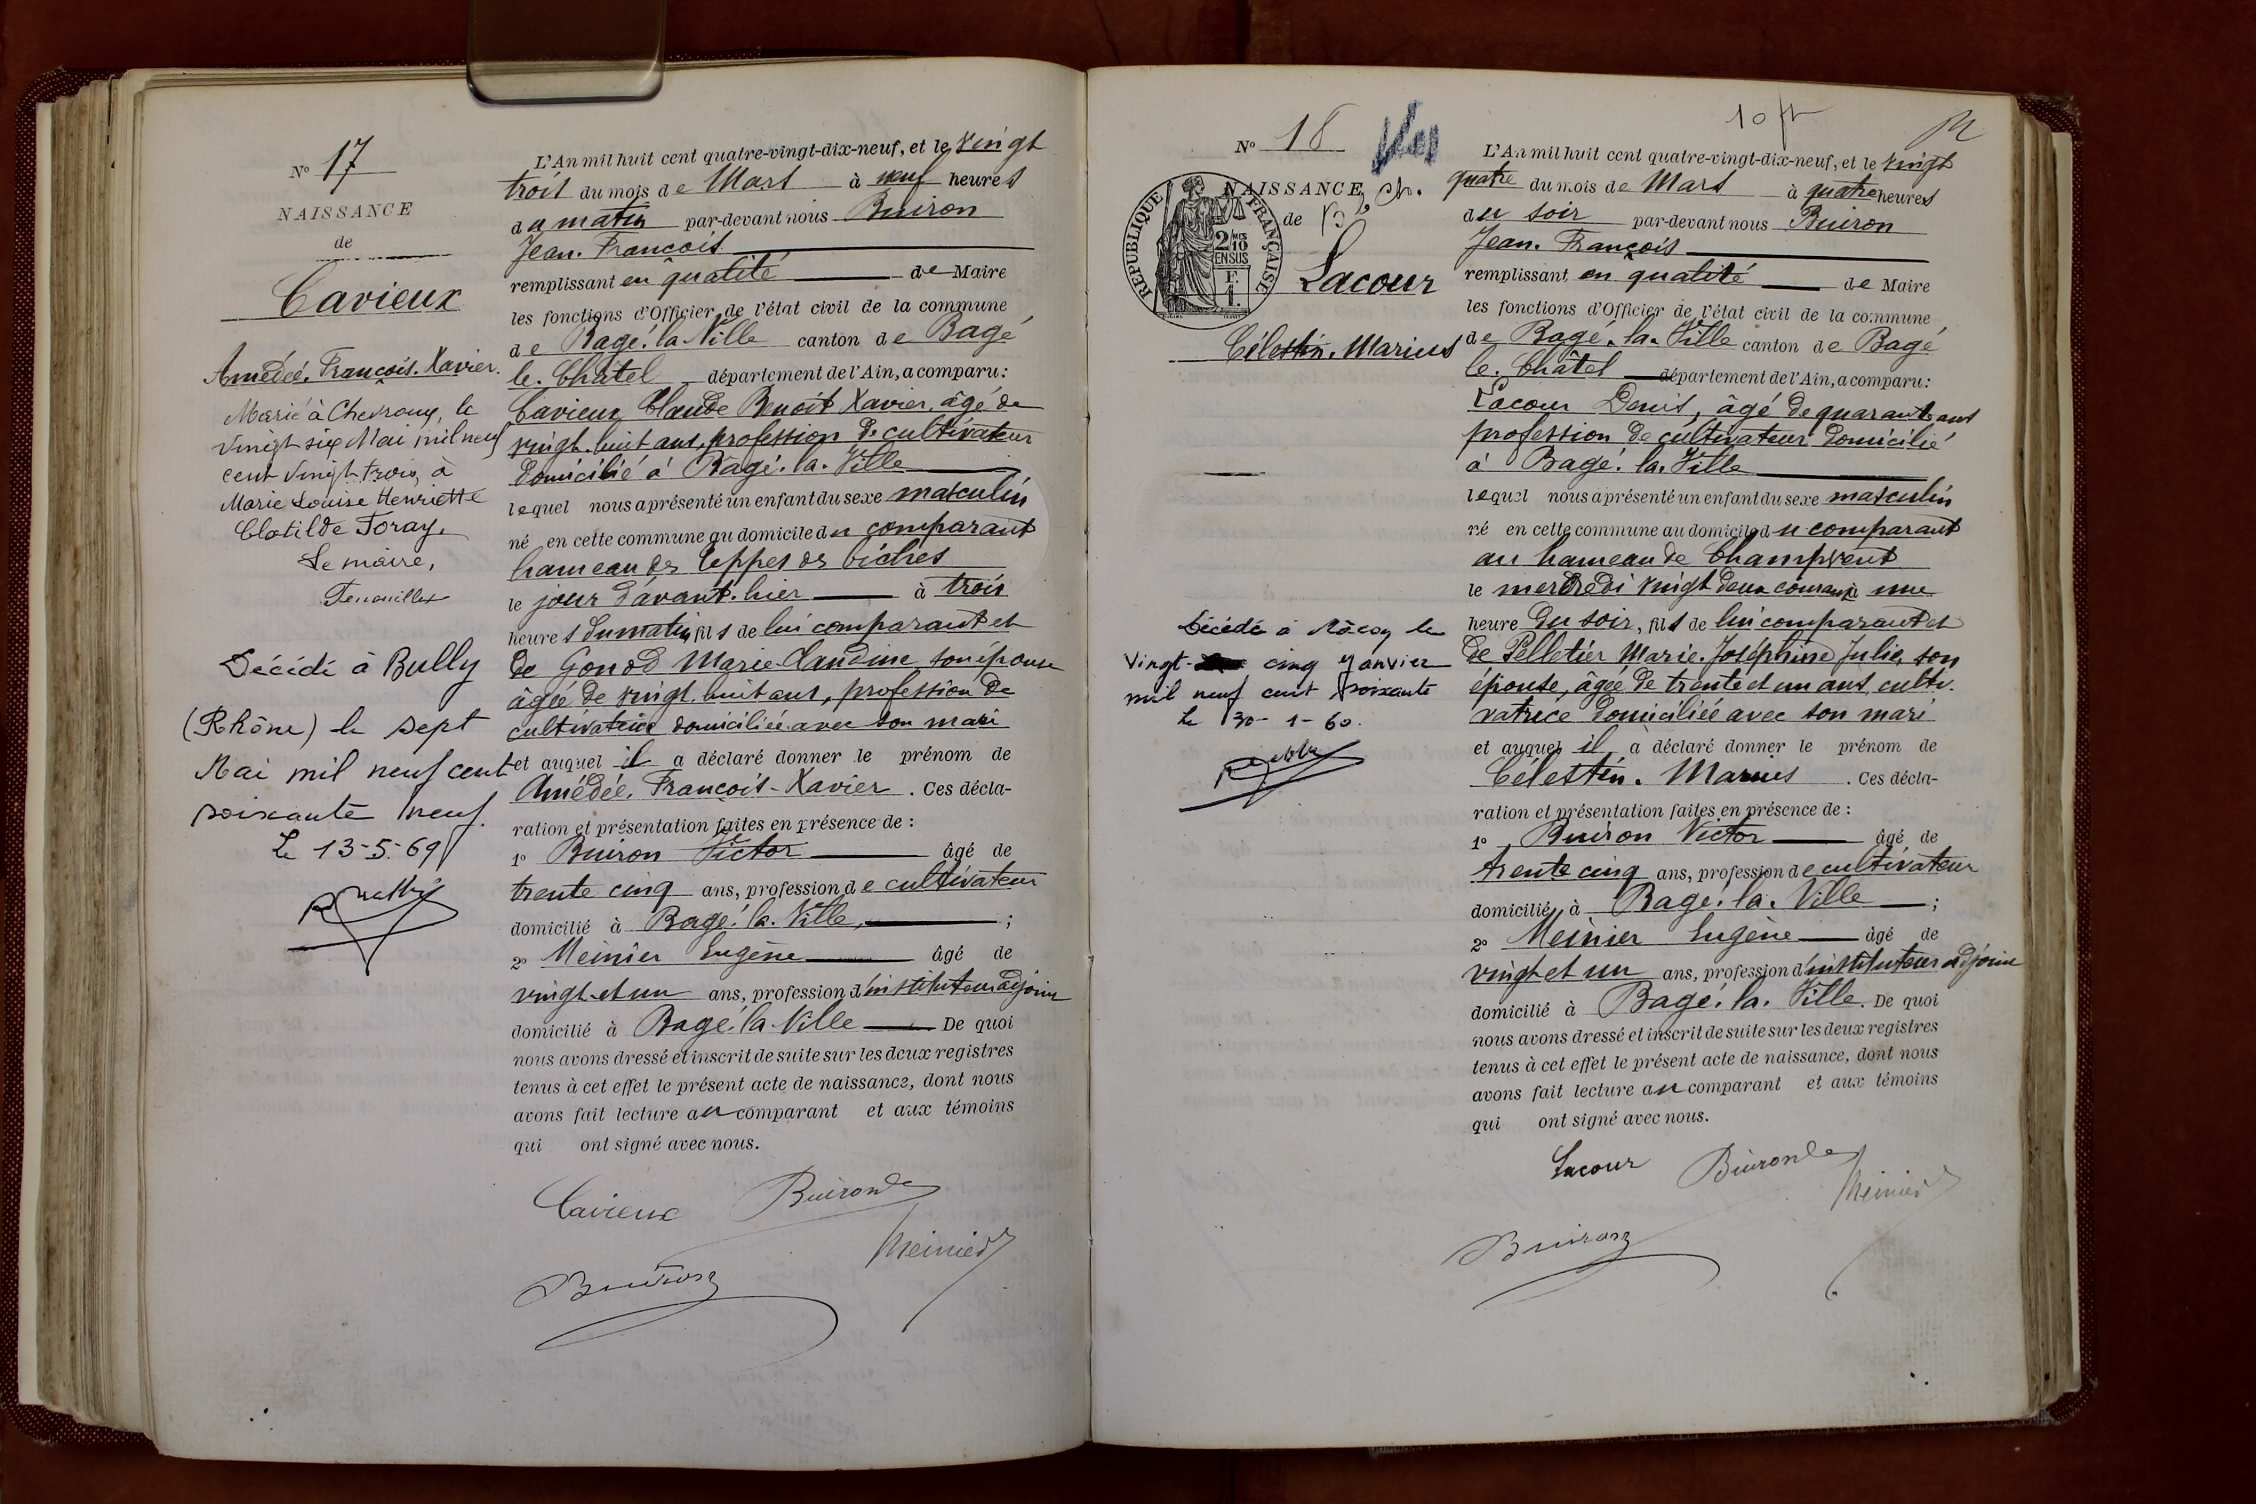 N° 17
NAISSANCE
de
Cavieux
Amédée. François. Xavier.
Marié à Chevroux, le
vingt six Mai mil neuf
cent vingt trois, à
Marie Louise Henriette
Clotilde Foray.
Le maire,
Décédé à Bully
(Rhône) le sept
Mai mil neuf cent
soixante neuf.
Le 13-5-69
L'An mil huit cent quatre-vingt-dix-neuf, et le vingt
trois du mois de Mars à neuf heures
du matin par-devant nous Buiron
Jean. François
remplissant en qualité de Maire
les fonctions d'Officier de l'état civil de la commune
de Bagé. la Ville canton de Bagé
le. Châtel département de l'Ain, a comparu :
Cavieux Claude Benoit Xavier, âgé de
vingt. huit ans, profession de cultivateur
domicilié à Bagé. la. Ville
lequel nous a présenté un enfant du sexe masculin
né en cette commune au domicile du comparant
hameau des Teppes de biches
le jour d'avant. hier à trois
heures du matin, fils de lui comparant et
de Gonod Marie Claudine, son épouse
âgée de vingt. huit ans, profession de
cultivatrice domiciliée avec son mari
et auquel il a déclaré donner le prénom de
Amédée. François - Xavier. Ces décla-
ration et présentation faites en présence de :
1° Buiron Victor âgé de
trente cinq ans, profession de cultivateur
domicilié à Bagé. la. Ville, ;
2° Meinier Eugène âgé de
vingt-et un ans, profession d'instituteur adjoint
domicilié à Bagé. la. Ville De quoi
nous avons dressé et inscrit de suite sur les deux registres
tenus à cet effet le présent acte de naissance, dont nous
avons fait lecture au comparant et aux témoins
qui ont signé avec nous.
Cavieux Buiron
Meinier
Buiron
10
N° 18
NAISSANCE
de
RÉPUBLIQUE FRANÇAISE
2/10 EN SUS
F. 1.
Lacour
Célestin. Marius
Décédé à Mâcon le
Vingt- cinq Janvier
mil neuf cent soixante
Le 30-1-60.
L'An mil huit cent quatre-vingt-dix-neuf, et le vingt
quatre du mois de Mars à quatre heures
du soir par-devant nous Buiron
Jean. François
remplissant en qualité de Maire
les fonctions d'Officier de l'état civil de la commune
de Bagé. la. Ville canton de Bagé
le. Châtel département de l'Ain, a comparu :
Lacour Denis, âgé de quarante ans
profession de cultivateur domicilié
à Bagé. la. Ville
lequel nous a présenté un enfant du sexe masculin
né en cette commune au domicile du comparant
au hameau de Champvent
le mercredi vingt deux courant à une
heure du soir, fils de lui comparant et
de Pelletier Marie. Joséphine Julie, son
épouse, âgée de trente et un ans, culti-
vatrice domiciliée avec son mari
et auquel il a déclaré donner le prénom de
Célestin. Marius. Ces décla-
ration et présentation faites en présence de :
1° Buiron Victor âgé de
trente cinq ans, profession de cultivateur
domicilié à Bagé. la. Ville ;
2° Meinier Eugène âgé de
vingt et un ans, profession d'instituteur adjoint
domicilié à Bagé. la. Ville. De quoi
nous avons dressé et inscrit de suite sur les deux registres
tenus à cet effet le présent acte de naissance, dont nous
avons fait lecture au comparant et aux témoins
qui ont signé avec nous.
Lacour Buiron
Meinier
Buiron